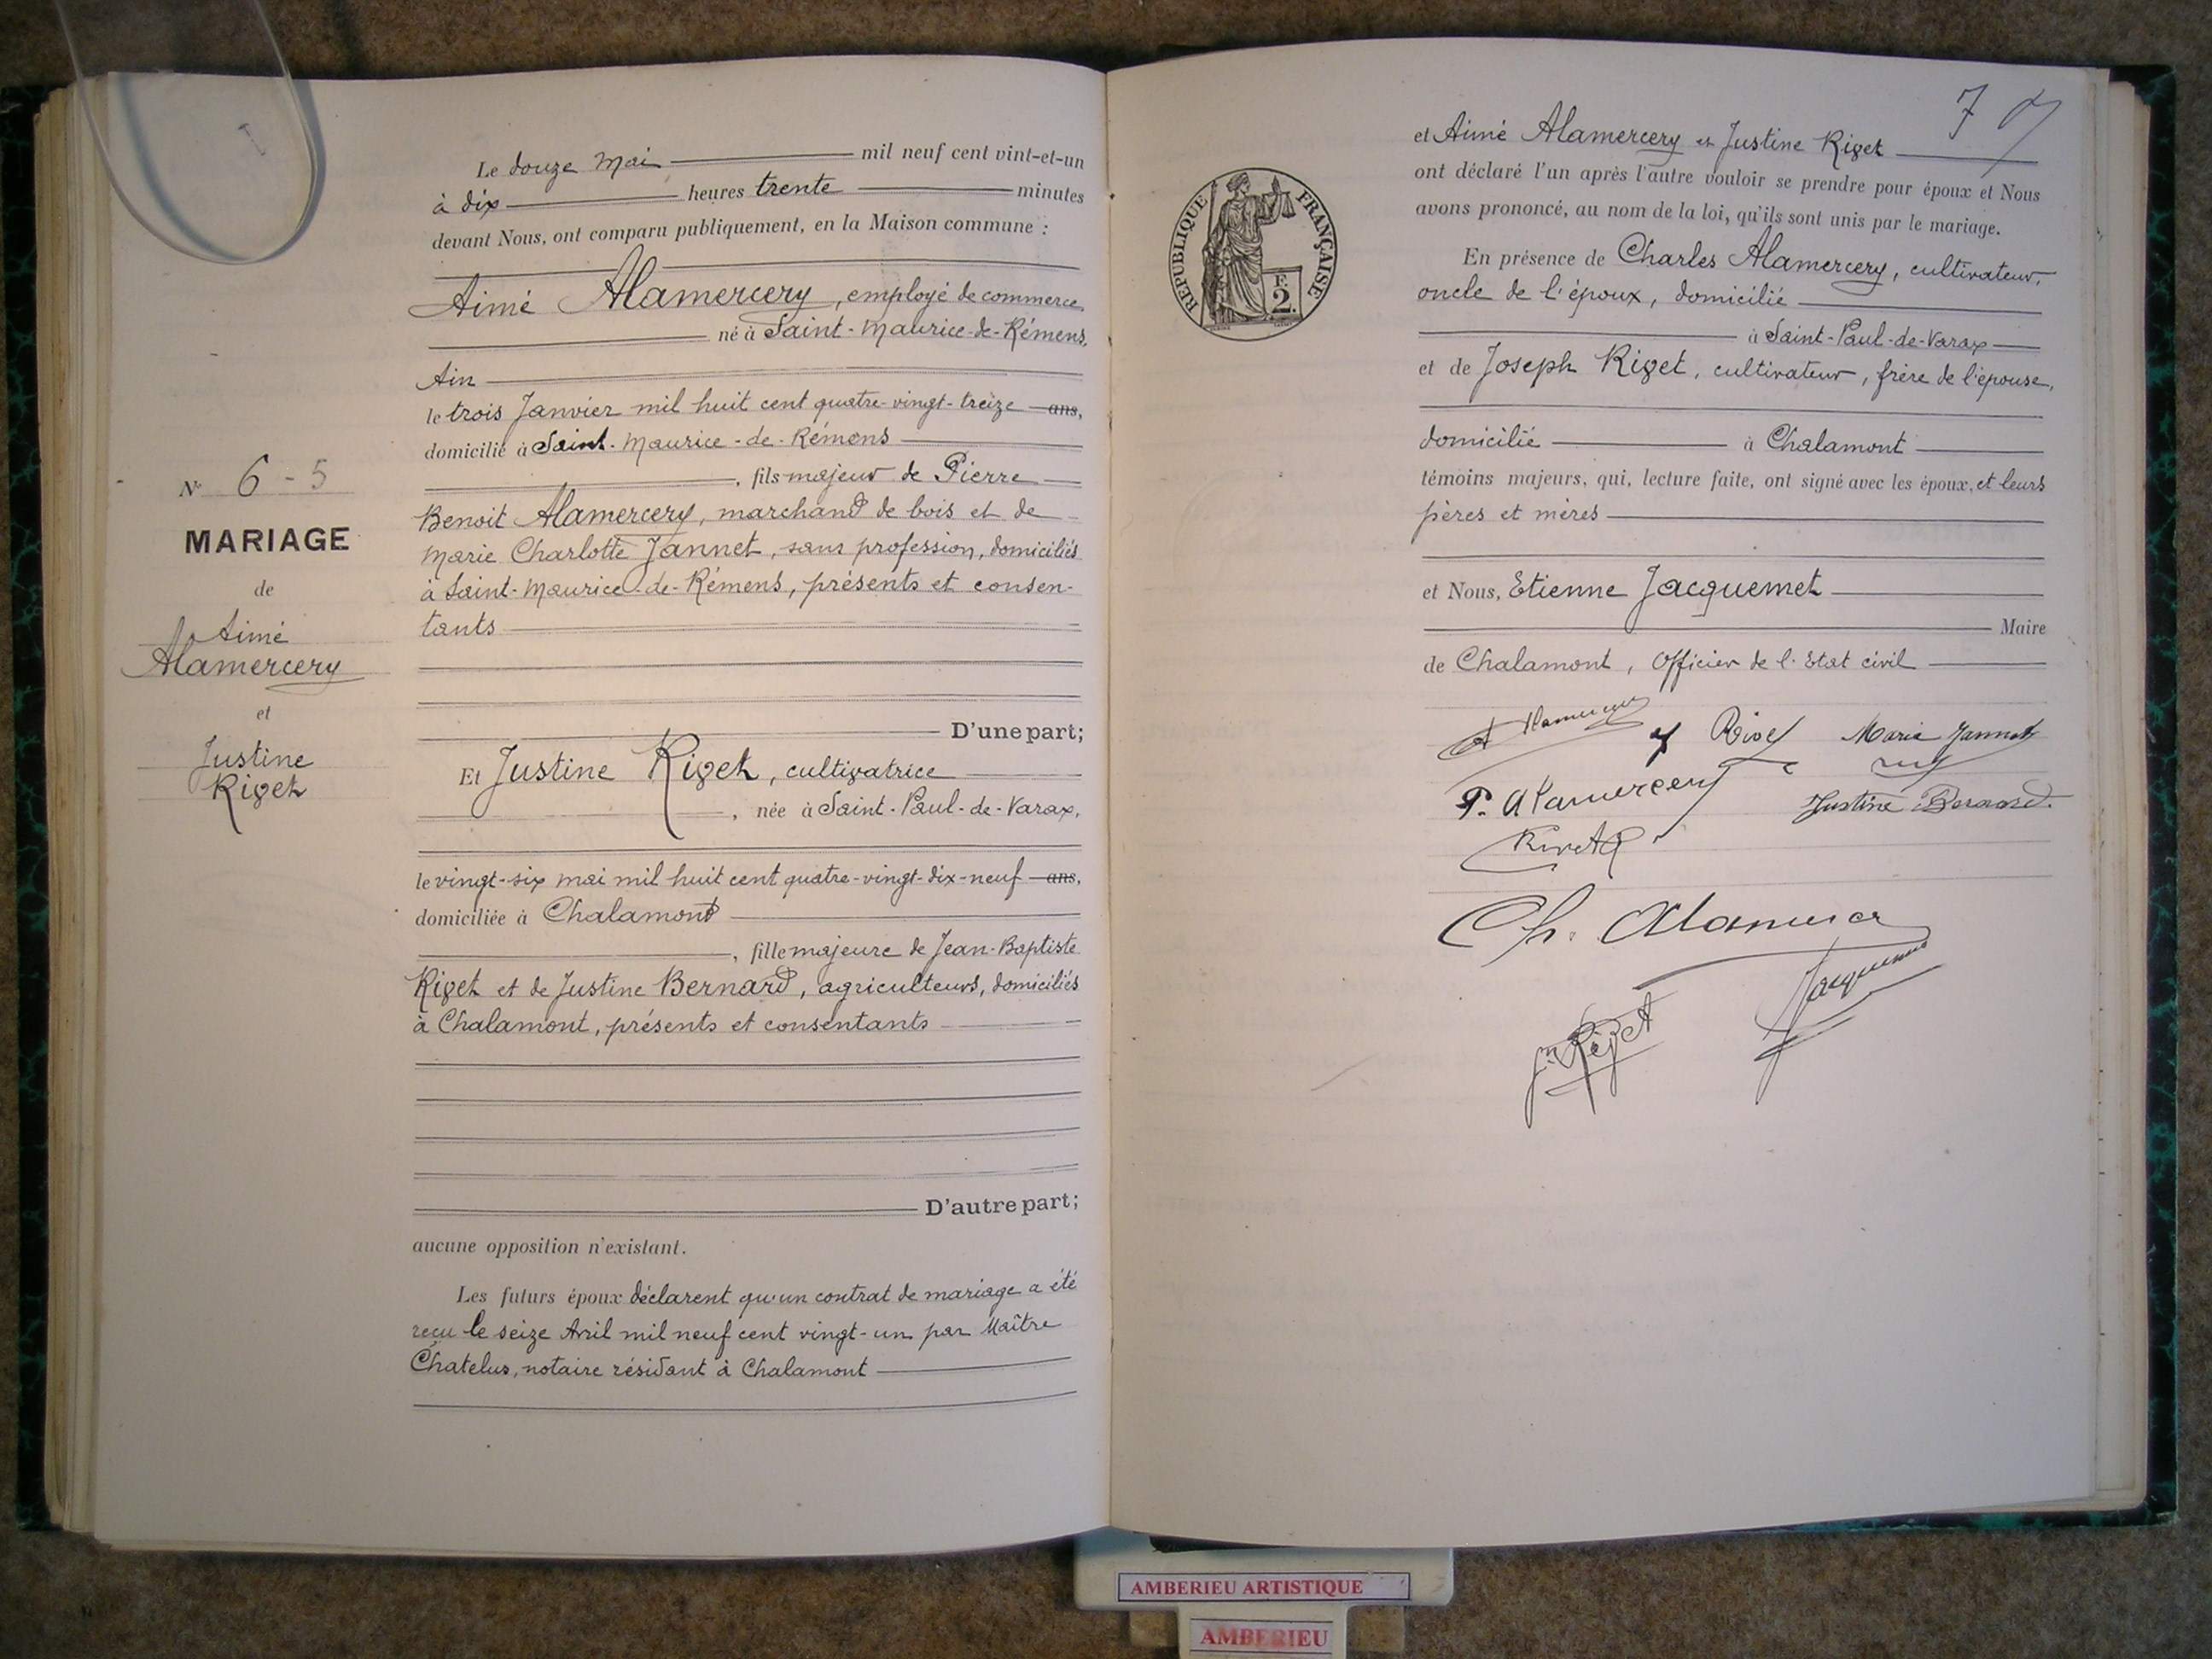 Le douze Mai mil neuf cent vint-et-un
à dix heures trente minutes
devant Nous, ont comparu publiquement, en la Maison commune :
Aimé Alamercery, employé de commerce
né à Saint-Maurice-de-Rémens,
Ain
le trois Janvier mil huit cent quatre-vingt-treize ans,
domicilié à Saint-Maurice-de-Rémens
, fils majeur de Pierre
Benoit Alamercery, marchand de bois et de
Marie Charlotte Jannet, sans profession, domiciliés
à Saint-Maurice-de-Rémens, présents et consen-
tants
D'une part;
Et Justine Rivet, cultivatrice
, née à Saint-Paul-de-Varax,
le vingt-six mai mil huit cent quatre-vingt-dix-neuf ans,
domiciliée à Chalamont
, fille majeure de Jean-Baptiste
Rivet et de Justine Bernard, agriculteurs, domiciliés
à Chalamont, présents et consentants
D'autre part;
aucune opposition n'existant.
Les futurs époux déclarent qu'un contrat de mariage a été
reçu le seize Avril mil neuf cent vingt-un par Maître
Chatelus, notaire résidant à Chalamont
N° 6-5
MARIAGE
de
Aimé
Alamercery
et
Justine
Rivet
7
et Aimé Alamercery et Justine Rivet
ont déclaré l'un après l'autre vouloir se prendre pour époux et Nous
avons prononcé, au nom de la loi, qu'ils sont unis par le mariage.
RÉPUBLIQUE FRANÇAISE
F.
2.
En présence de Charles Alamercery, cultivateur,
oncle de l'époux, domicilié
à Saint-Paul-de-Varax
et de Joseph Rivet, cultivateur, frère de l'épouse,
domicilié à Chalamont
témoins majeurs, qui, lecture faite, ont signé avec les époux, et leurs
pères et mères
et Nous, Etienne Jacquemet
Maire
de Chalamont, Officier de l'Etat civil
A Alamercery J Rivet Marie Jannet
P. Alamercery Justine Bernard
Rivet
Ch. Alamercery
Jacquemet
Jh Rivet
AMBERIEU ARTISTIQUE
AMBERIEU